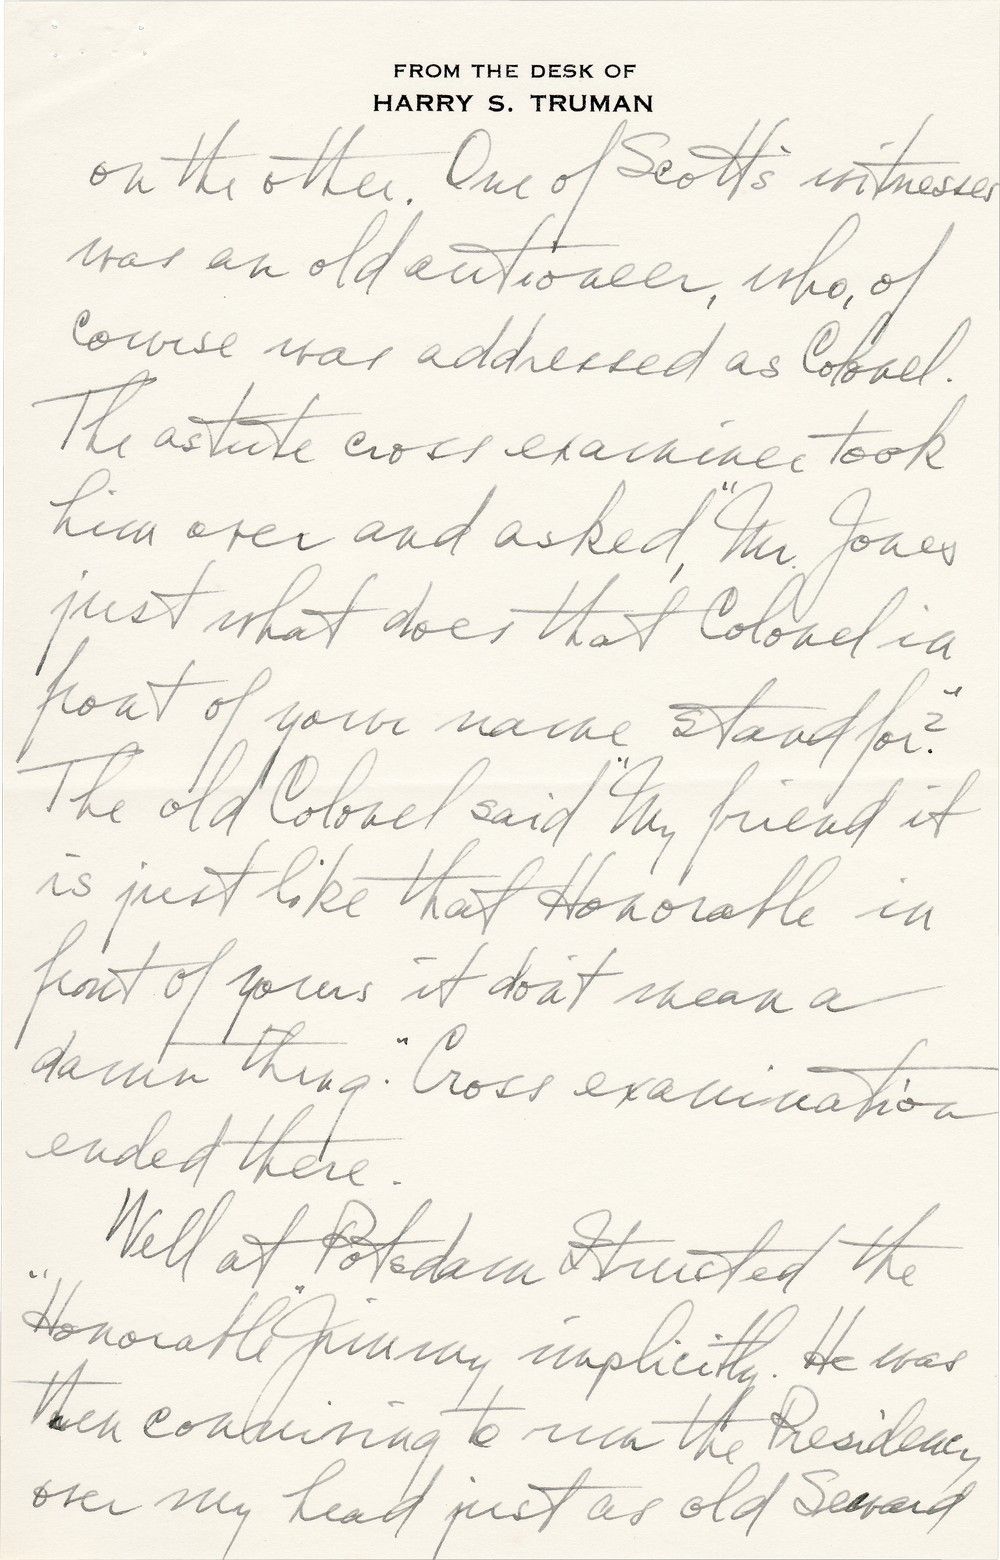 FROM THE DESK OF
HARRY S. TRUMAN
on the other. One of Scott's witnesses
was an old autioneer, who, of
course was addressed as Colonel.
The astute cross examiner took
him over and asked, "Mr. Jones
just what does that Colonel in
front of your name stand for?"
The old Colonel said "My friend it
is just like that Honorable in
front of yours it don't mean a
damn thing." Cross examination
ended there.
Well at Potsdam I trusted the
"Honorable" Jimmy implicitly. He was
then conniving to run the Presidency
over my head just as old Seward